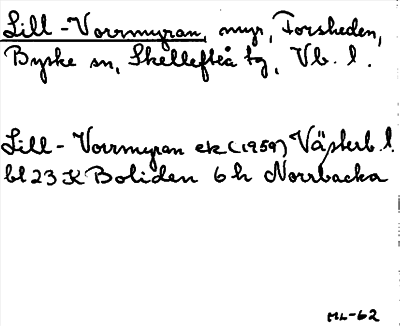 Lill-Vorrmyran, myr, Forsheden,
Byske sn, Skellefteå tg, Vb. l.
Lill-Vorrmyran ek (1959) Västerb. l.
bl 23 K Boliden 6 h Norrbacka
ML-62